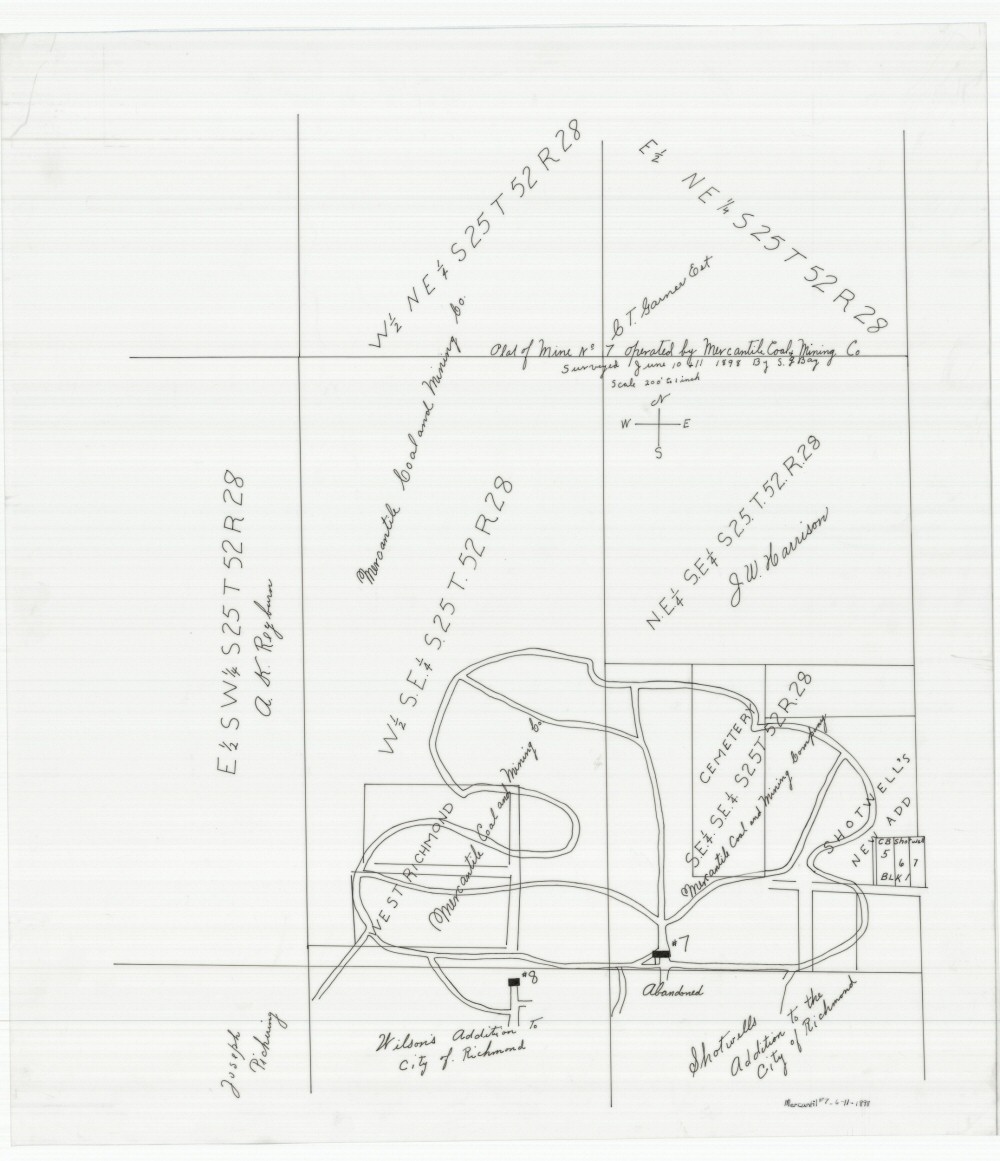 W½ NE¼ S25 T 52 R 28
E½ NE¼ S25 T 52 R 28
C T. Garner Est
Mercantile Coal and Mining Co.
Plat of Mine No 7 operated by Mercantile Coal & Mining Co
Surveyed June 10 & 11 1898 By S. J Bay
Scale 200' to 1 inch
N
W E
S
E½ SW¼ S25 T 52 R 28
A. K. Reyburn
W½ S.E.¼ S.25 T. 52 R 28
N.E¼ S.E¼ S25. T. 52. R. 28
J. W. Harrison
CEMETERY
S.E.¼ S.E.¼ S25 T 52 R. 28
Mercantile Coal and Mining Company
WEST RICHMOND
Mercantile Coal and Mining Co
SHOTWELL'S
NEW ADD
CB Shotwell
5 6 7
BLK 1
#7
Abandoned
#8
Wilson's Addition To
City of Richmond
Shotwells
Addition to the
City of Richmond
Joseph
Pickering
Mercantil #7-6-11-1898